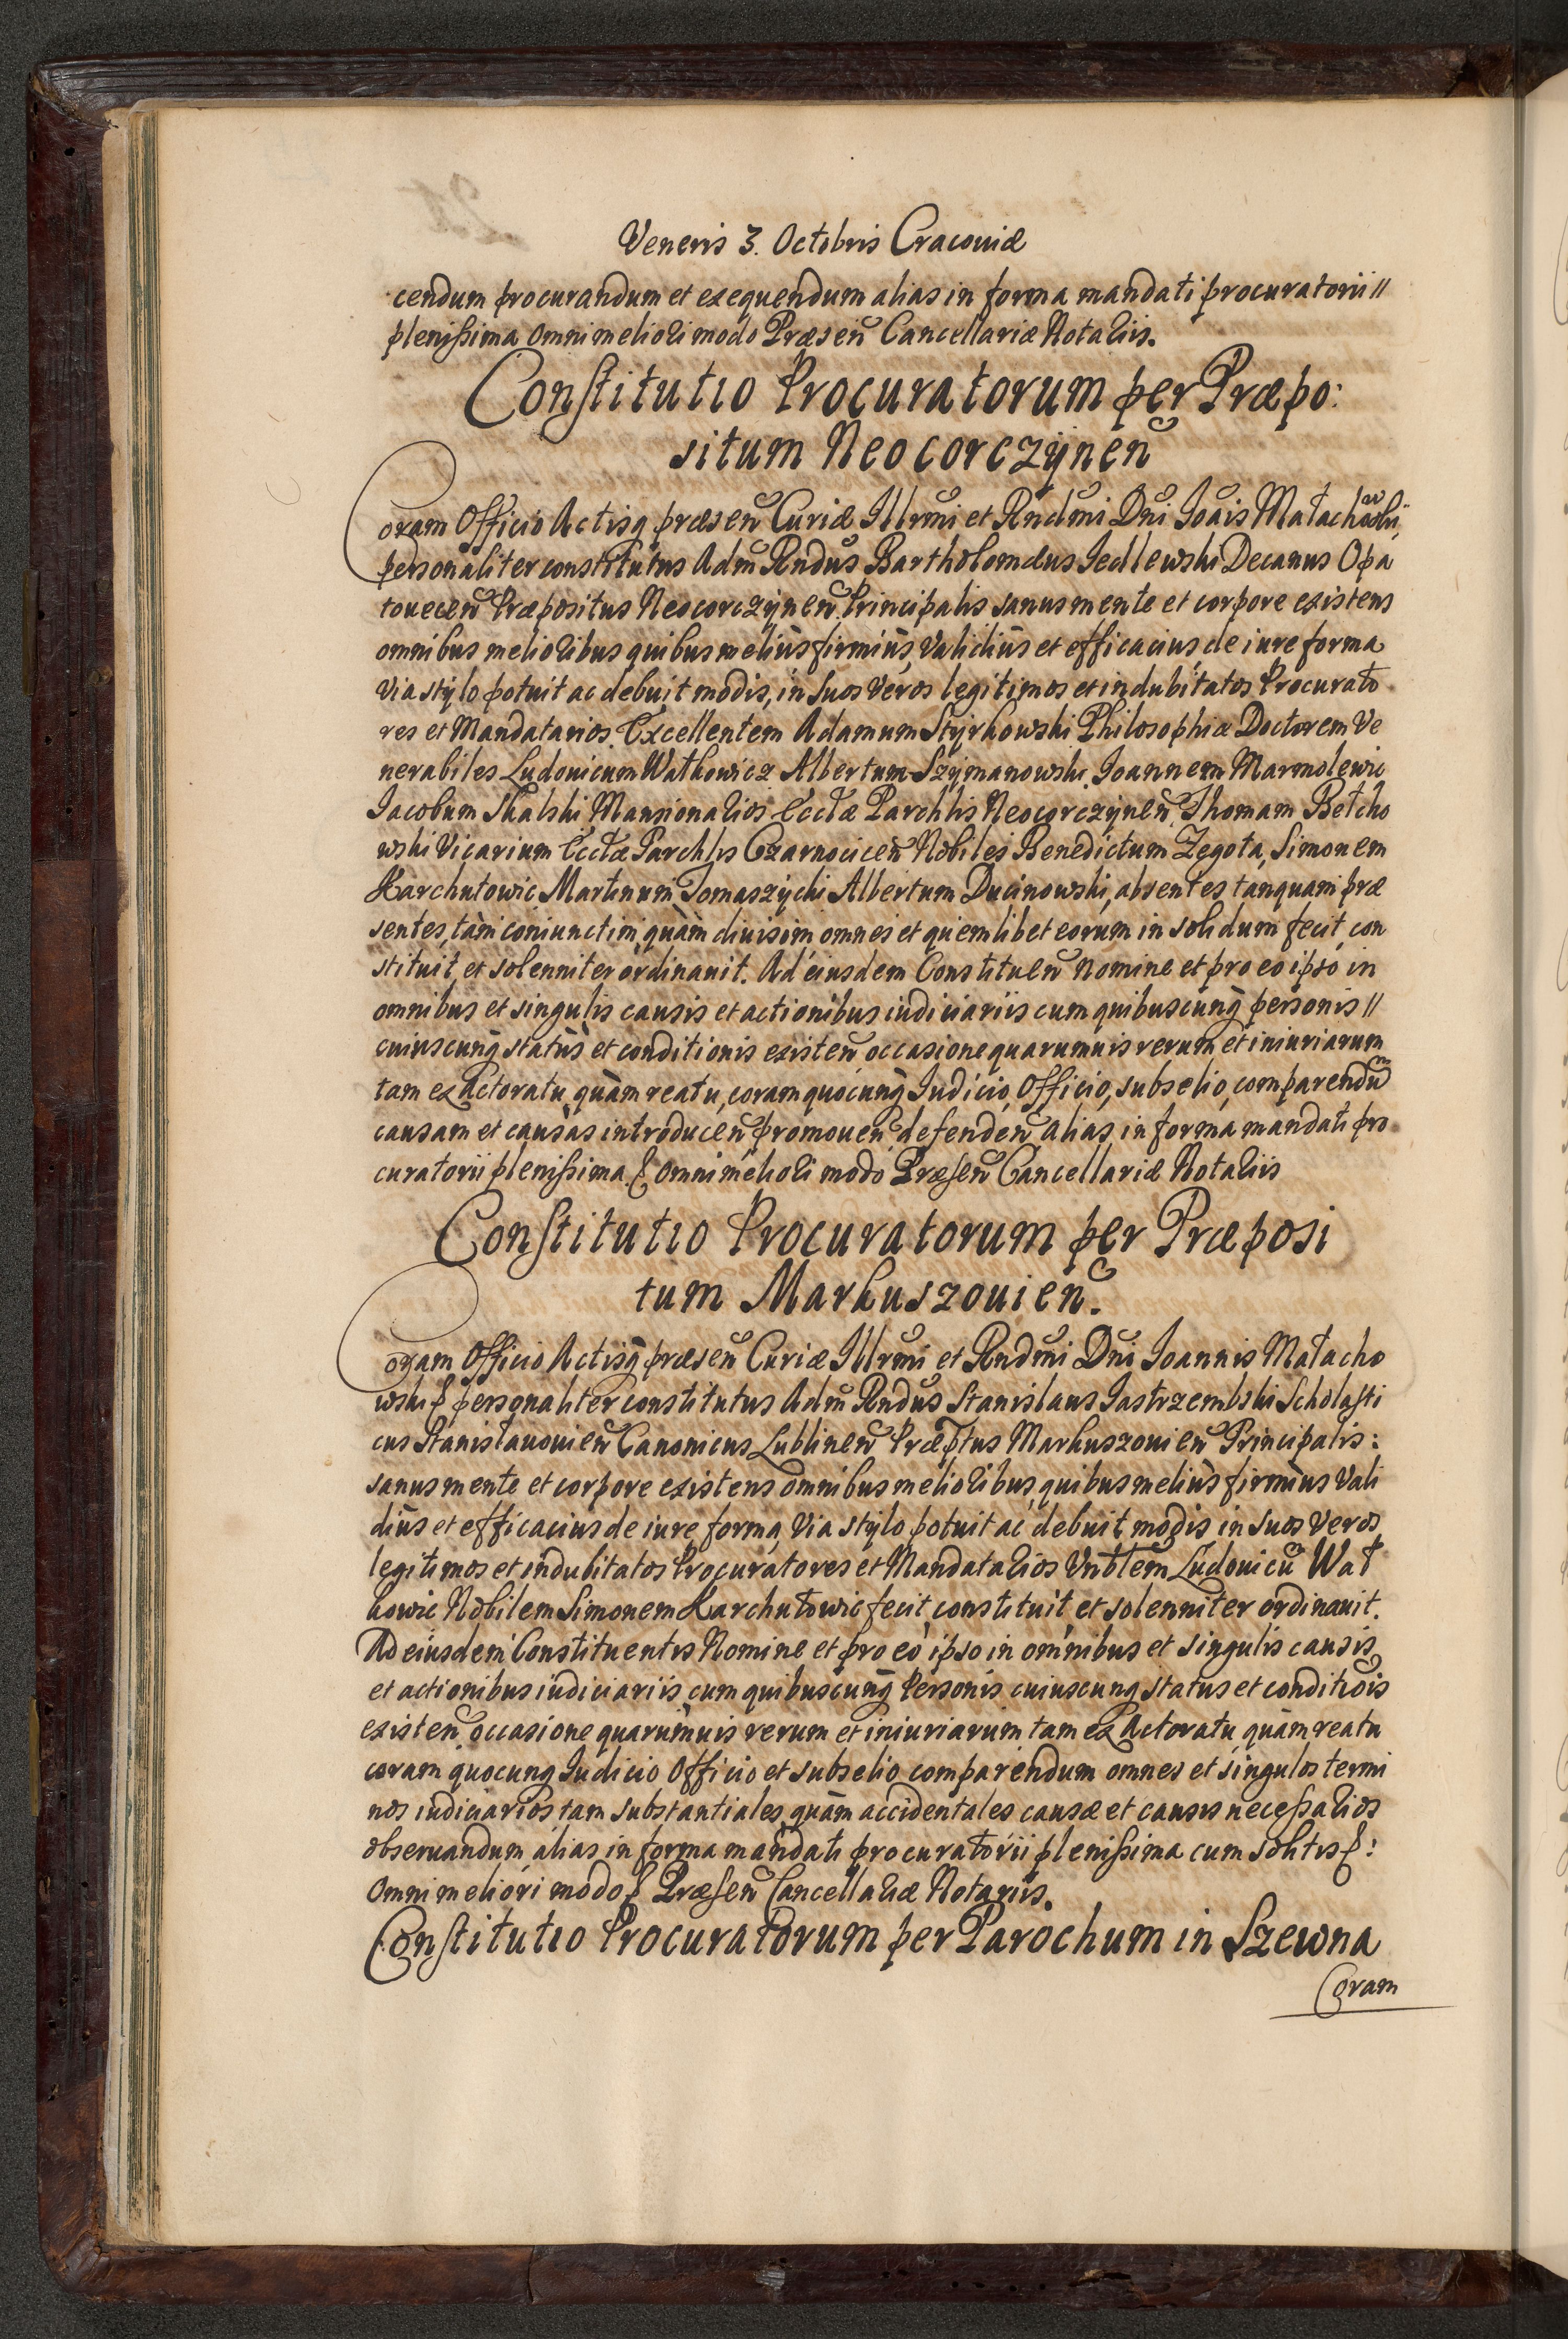 Veneris 3. Octobris Cracouiæ
cendum procurandum et exequendum alias in forma mandati procuratorii //
plenissima omni meliori modo Præsen̄ Cancellariæ Notariis.
Constitutio Procuratorum per Præpo:
situm Neocorczÿnen̄
Coram Officio Actisq̄ præsen̄ Curiæ Illrm̄i et Rndm̄i Dn̄i Ioāis Małachowski
personaliter constitutus Adm̄ Rndūs Bartholomæus Iedlewski Decanus Opa
touecen̄ Præpositus Neocorczÿnen̄ Principalis sanus mente et corpore existens
omnibus melioribus quibus meliùs firmiùs, validiùs et efficacius de iure forma
via stÿlo potuit ac debuit modis, in suos veros legitimos et indubitatos Procurato
res et Mandatarios. Excellentem Adamum Stÿrkowski Philosophiæ Doctorem Ve
nerabiles Ludouicum Watkowicz Albertum Szÿmanowski Ioannem Marmolewic
Iacobum Skalski Mansionarios Ecctæ Parchlis Neocorczÿnen̄ Thomam Bełcho
wski Vicarium Ecctæ Parchlis Czarnocicen̄ Nobiles Benedictum Zegota, Simonem
Karchutowic Martinum Tomaszÿcki Albertum Ducinowski, absentes tanquam præ
sentes, tàm coniunctim, quàm diuisim omnes et quemlibet eorum in solidum fecit, con
stituit, et solenniter ordinauit. Ad eiusdem Constituen̄ nomine et pro eo ipso in
omnibus et singulis causis et actionibus iudiciariis cum quibuscunq̄ personis //
cuiuscunq̄ statùs et conditionis existen̄ occasione quarumuis rerum et iniuriarum
tam ex Actoratu quàm reatu, coram quocunq̄ Iudicio, Officio, subselio, comparendū
causam et causas introducen̄ promouen̄ defenden̄ alias in forma mandati pro
curatorii plenissima & omni meliori modo Præsen̄ Cancellariæ Notariis
Constitutio Procuratorum per Præposi
tum Markuszouien̄.
Coram Officio Actisq̄ præsen̄ Curiæ Illrm̄i et Rndm̄i Dn̄i Ioannis Małacho
wski & personaliter constitutus Adm̄ Rndūs Stanislaus Iastrzembski Scholasti
cus Stanislauouien̄ Canonicus Lublinen̄ Præptus Markuszouien̄ Principalis:
sanus mente et corpore existens omnibus melioribus, quibus meliùs firmiùs vali
diùs et efficacius de iure forma, via stÿlo potuit ac debuit modis in suos veros
legitimos et indubitatos Procuratores et Mandatarios Vnbtem Ludouicū Wat
kowic Nobilem Simonem Karchutowic fecit, constituit et solenniter ordinauit.
Ad eiusdem Constituentis Nomine et pro eo ipso in omnibus et singulis causis
et actionibus iudiciariis, cum quibuscunq̄ Personis cuiuscunq status et conditiōis
existen̄ occasione quarumuis rerum et iniuriarum tam ex Actoratu quàm reatu
coram quocunq Iudicio Officio et subselio comparendum omnes et singulos termi
nos iudiciarios tam substantiales, quàm accidentales causæ et causis necessarios
obseruandum alias in forma mandati procuratorii plenissima cum solitis &:
Omni meliori modo & Præsen̄ Cancellariæ Notariis.
Constitutio Procuratorum per Parochum in Szewna
Coram